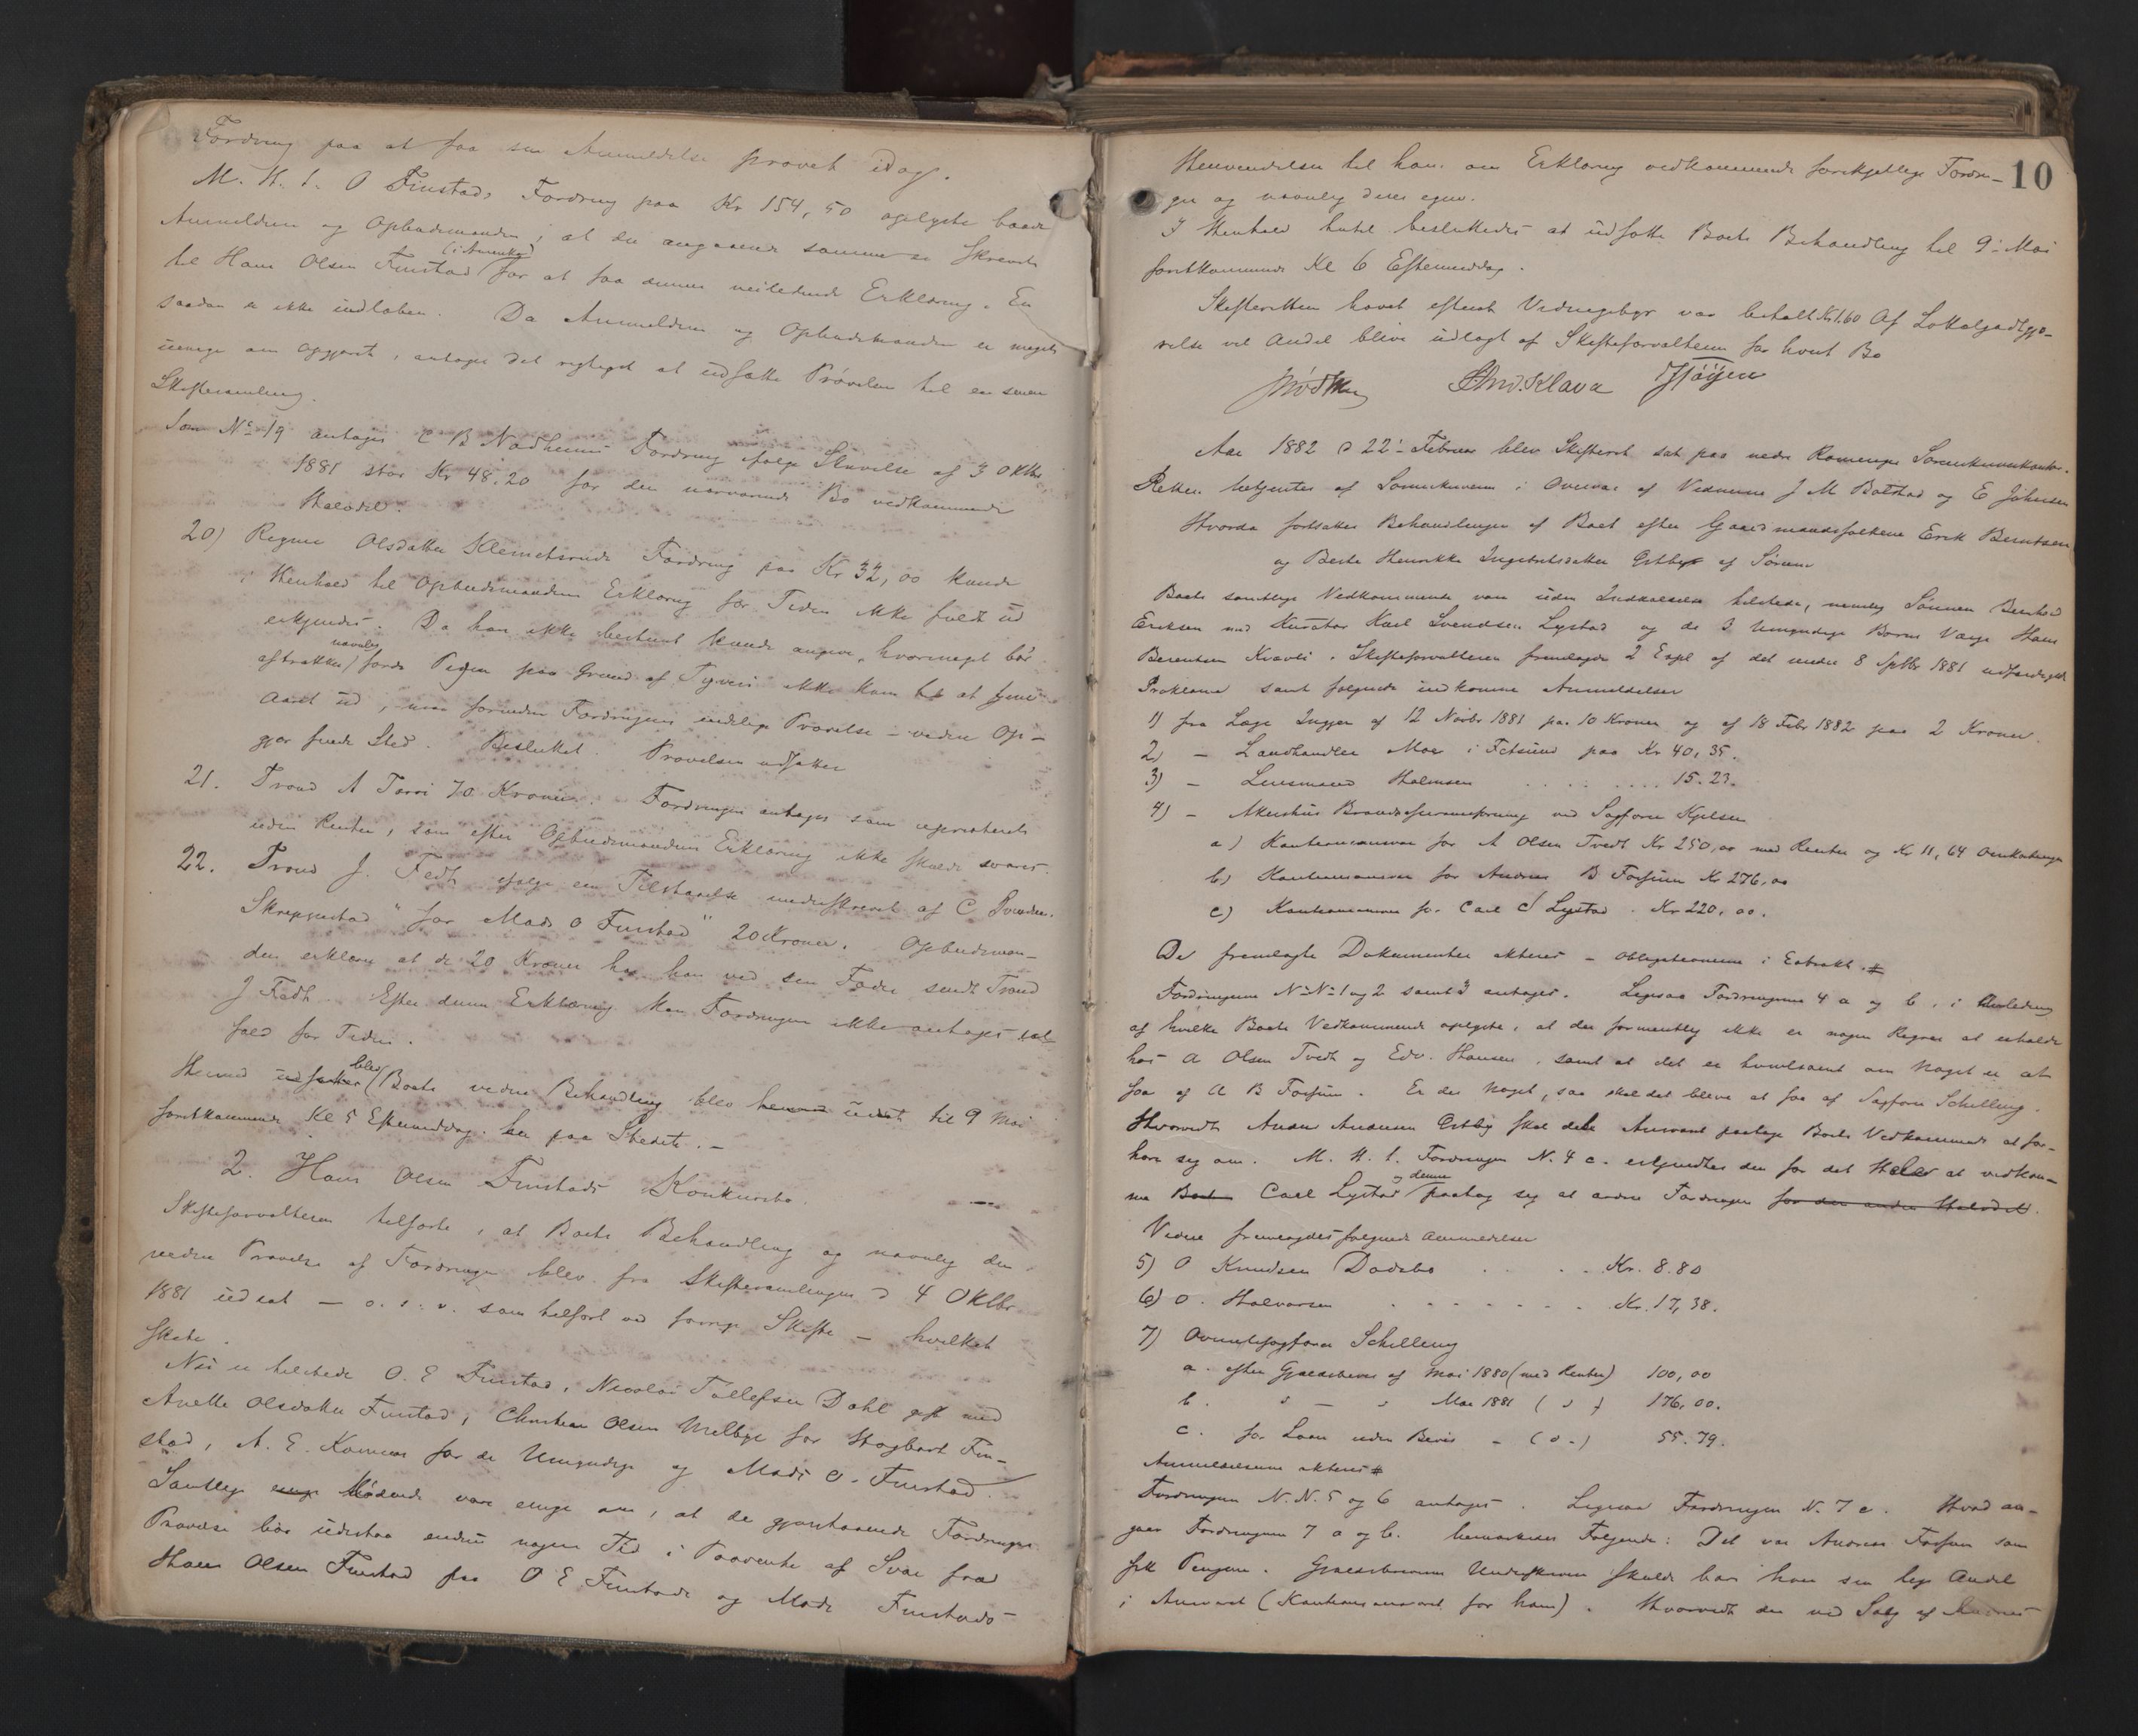 Fordring paa at faa sin Anmeldelse prøvet idag.
M. H. t. O Finstads Fordring paa Kr 154,50 oplyste baade
Anmelderen og Opbudsmanden, at der angaaende samme er skrevet
til Hans Olsen Finstad (i Amerika) for at faa dennes veiledende Erklæring. En
saadan er ikke indløben. Da Anmelderen og Opbudsmanden er meget
uenige om Opgjøret, antages det rigtigst at udsætte Prøvelsen til en senere
Skiftesamling.
Som No 19 antages C B Nødheims Fordring ifølge Skrivelse af 3 Oktbr
1881 stor Kr 48.20 for den nærværende Bo vedkommende
Halvdel.
20) Regine Olsdatter Klemetsruds Fordring paa Kr 32,00 kunde
i Henhold til Opbudsmandens Erklæring for Tiden ikke fuldt ud
erkjendes. Da han ikke bestemt kunde angive, hvormeget bør
aftrækkes, navnlig fordi Pigen paa Grund af Tyveri ikke kom til at tjene
Aaret ud, maa forinden Fordringens endelige Prøvelse videre Op-
gjør finde Sted. Besluttet. Prøvelsen udsættes
21. Trond A Tærri 70 Kroner. Fordringen antages som uprioriteret
uden Renter, som efter Opbudsmandens Erklæring ikke skulde svares.
22. Trond J. Fedt ifølge en Tilstaaelse underskrevet af C Svendsen
Skreppestad "for Mads O Finstad" 20 Kroner. Opbudsman-
den erklærer at de 20 Kroner har han ved sin Fader sendt Trond
J Fedt. Efter denne Erklæring kan Fordringen ikke antages ial-
fald for Tiden.
Hermed udsættes blev Boets videre Behandling blev hermed udsat til 9 Mai
førstkommende Kl 5 Eftermiddag her paa Stedet. -
2. Hans Olsen Finstads Konkursbo.
Skifteforvalteren tilførte, at Boets Behandling og navnlig den
videre Prøvelse af Fordringer blev fra Skiftesamlingen d 4 Oktbr
1881 udsat - o. s. v. som tilført ved forrige Skifte - hvilket
skete.
Nu er tilstede O. E Finstad, Nicolai Tollefsen Dahl gift med
Anette Olsdatter Finstad, Christian Olsen Melbye for Hagbart Fin-
stad, A. E. for de Umyndige og Mads O. Finstad
Samtlige enige Mødende vare enige om, at de gjenstaaende Fordringers
Prøvelse bør udestaa endnu nogen Tid i Paavente af Svar fra
Hans Olsen Finstad paa O E Finstads og Mads Finstads
10
Henvendelser til ham om Erklæring vedkommende forskjellige Fordrin-
ger og navnlig deres egne.
I Henhold hertil besluttedes at udsætte Boets Behandling til 9de Mai
førstkommende Kl 6 Eftermiddag.
Skifteretten hævet efterat Vidnegebyr var betalt Kr 1.60 Af Lokalgodtgjø-
relse vil Andel blive udlagt af Skifteforvalteren for hvert Bo
And. Klava
Aar 1882 d 22de Februar blev Skifteret sat paa nedre Romerige Sorenskriverkontor.
Retten betjentes af Sorenskriveren i Overvær af Vidnerne J M Bøtstad og E Johnsen
Hvorda fortsattes Behandlingen af Boet efter Gaardmandsfolkene Erik Berntsen
og Berte Henrikke Ingebretsdatter Østby af Sørum
Boets samtlige Vedkommende vare uden Indkaldelse tilstede, nemlig Sønnen Bernhard
Eriksen med Kurator Karl Svendsen Lystad og de 3 umyndige Børns Værge Hans
Berentsen Kvævli. Skifteforvalteren fremlagde 2 Expl af det under 8 Septbr 1881 udfærdigede
Proklama samt følgende indkomne Anmeldelser
1) fra Læge Inger af 12 Novbr 1881 paa 10 Kroner og af 18 Febr 1882 paa 2 Kroner.
2) - Landhandler Moe i Fetsund paa Kr 40,35.
3) - Lensmand Holmsen . . . . . . . . 15.23.
4) - Akershus Brandassuranceforening ved Sagfører Kjelsen
a) Kautionsansvar for A Olsen Tvedt Kr 250,00 med Renter og Kr 11,64 Omkostninger
b) Kautionsansvar for Andreas B Forfum Kr 276,00
c) Kautionsansvar for Carl S Lystad . Kr 220,00.
De fremlagte Dokumenter akteres - Obligationerne i Extrakt. #
Fordringerne No No 1 og 2 samt 3 antages. Ligesaa Fordringerne 4 a og b, i Anledning
af hvilke Boets Vedkommende oplyste, at der formentlig ikke er nogen Regres at erholde
hos A Olsen Tvedt og Edv. Hansen, samt at det er tvivlsomt om Noget er at
faa af A B Forfum. Er der noget, saa skal det blive at faa af Sagfører Schilling.
Hvorvidt Anders Andersen Østby skal dele Ansvaret paatage Boets Vedkommende at for-
høre sig om. M. H. t. Fordringen N. 4 c. erkjendtes den for det Hele at vedkom-
me Boet Carl Lystad og denne paatog sig at ordne Fordringen for den anden Halvdel.
Videre fremlagdes følgende Anmeldelser
5) O Knudsen Dødsbo . . . . Kr. 8.80
6) O. Halvorsen . . . . . . . Kr. 17,38.
7) Overretssagfører Schilling
a. efter Gjældsbevis af Mai 1880 (med Renter) 100,00
b. " - " Mai 1881 ( " ) 176,00.
c. for Laan uden Bevis - ( " ) 55.79.
Anmeldelserne akteres #
Fordringen N. N. 5 og 6 antages. Ligesaa Fordringen N. 7 c. Hvad an-
gaar Fordringerne 7 a og b. bemærkedes Følgende: Det var Andreas Forfum som
fik Pengene. Gjældsbrevenes Underskrivere skulde have hver sin lige Andel
i Ansvaret (Kautionsansvaret for ham). Hvorvidt der ved Salg af Andreas